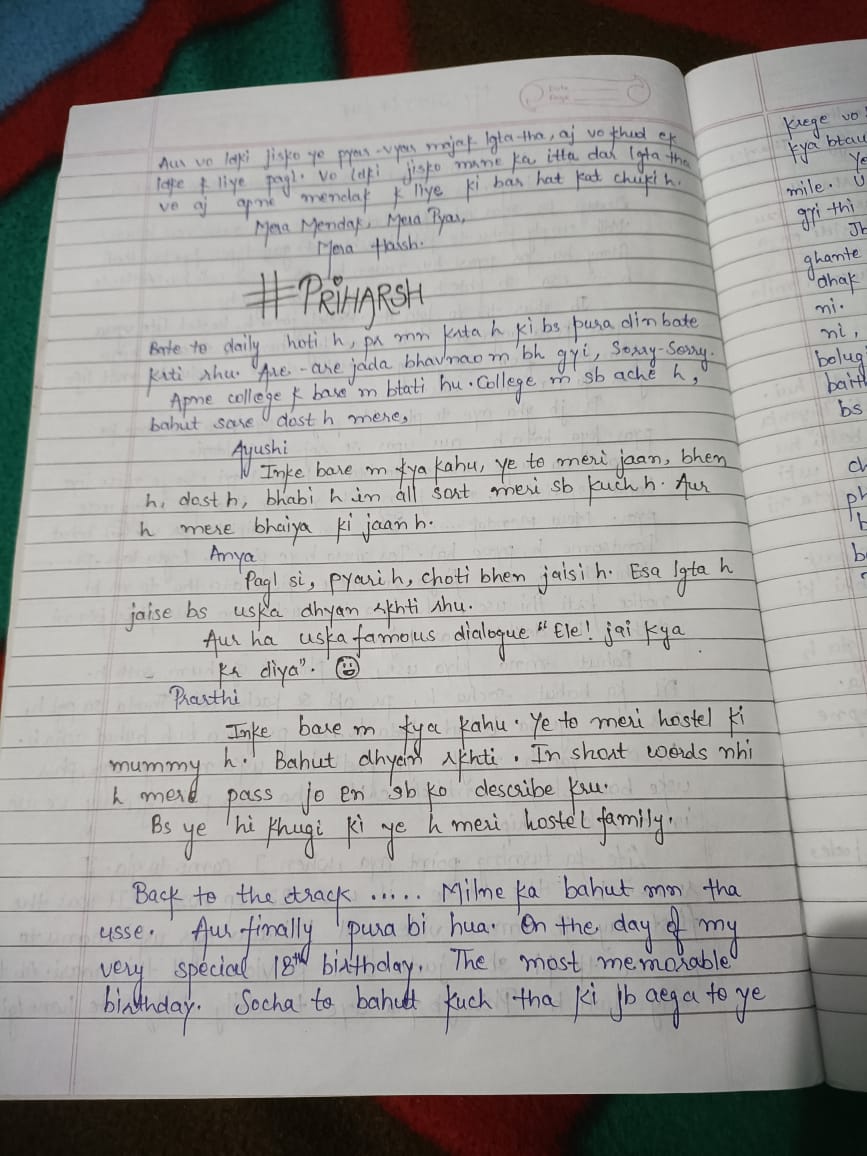 Aur vo ladki jisko ye pyar-vyar majak lgta tha, aj vo khud ek
ladke k liye pagl. Vo ladki jisko marne ka itta dar lgta tha
vo aj apne mendak k liye ki bar hat kat chuki h.
Mera Mendak, Mera Pyar,
Mera Harsh.
#PRIHARSH
Bate to daily hoti h, pr mnn krta h ki bs pura din bate
krti rhu. Are-are jada bhavnao m bh gyi, Sorry-Sorry.
Apne college k bare m btati hu. College m sb ache h,
bahut sare dost h mere,
Ayushi
Inke bare m kya kahu, ye to meri jaan, bhen
h, dost h, bhabi h in all sort meri sb kuch h. Aur
h mere bhaiya ki jaan h.
Anya
Pagl si, pyari h, choti bhen jaisi h. Esa lgta h
jaise bs uska dhyan rkhti rhu.
Aur ha uska famous dialogue "Ele! jai kya
kr diya". ☺
Prarthi
Inke bare m kya kahu. Ye to meri hostel ki
mummy h. Bahut dhyan rkhti. In short words nhi
h mere pass jo en sb ko describe kru.
Bs ye hi khugi ki ye h meri hostel family.
Back to the track ..... Milne ka bahut mnn tha
usse. Aur finally pura bi hua. On the day of my
very special 18th birthday. The most memorable
birthday. Socha to bahut kuch tha ki jb aega to ye
krege vo
kya btau
Ye
mile.
gyi thi
Jb
ghante
dhak
ni.
ni,
bolugi
baith
bs